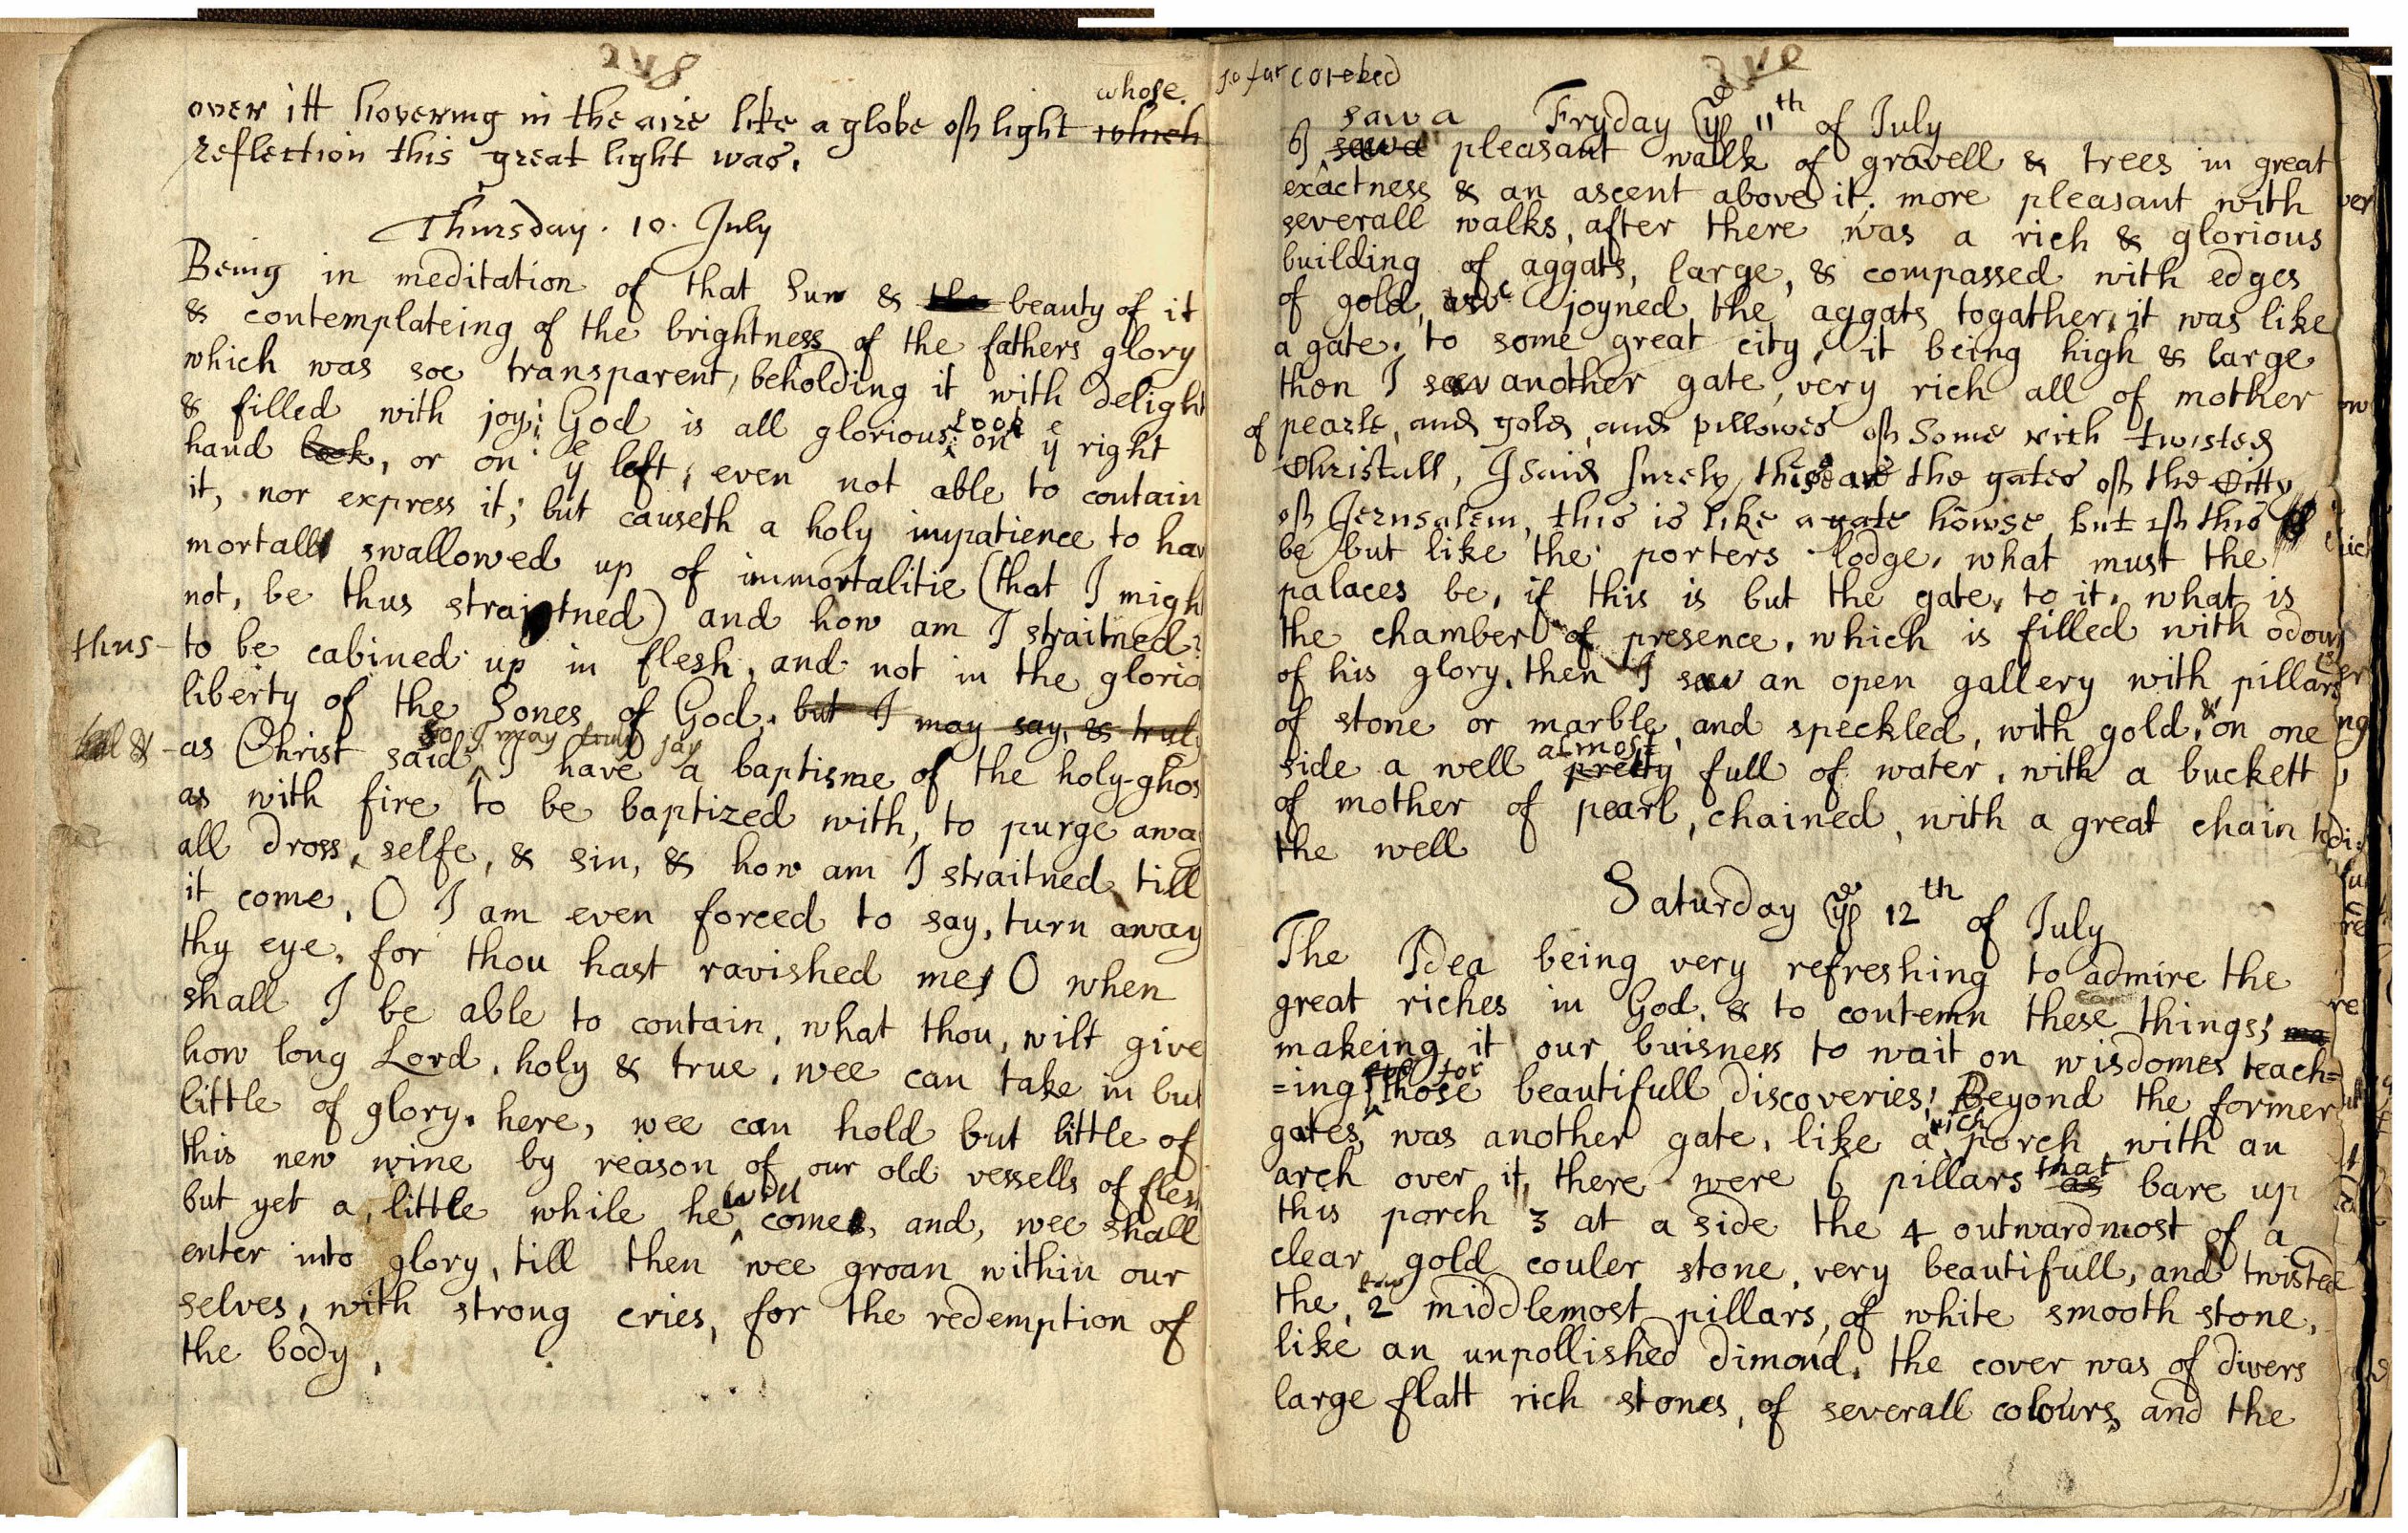 248
whose
over itt hovering in the aire like a globe off light which
reflection this great light was.
Thursday. 10. July
Being in meditation of that Sun & the beauty of it
& contemplateing of the brightness of the fathers glory
which was soe transparent, beholding it with delight
& filled with joy; God is all glorious, look on ye right
hand look, or on ye left, even not able to contain
it, nor express it; but causeth a holy impatience to hav
mortall swallowed up of immortalitie (that I migh
not, be thus straitned) and how am I straitned?
thus - to be cabined up in flesh, and not in the glorio
liberty of the Sones of God. but I may say, & trul
& - as Christ said, so I may truly say I have a baptisme of the holy-ghos
as with fire to be baptized with, to purge awa
all dross, selfe, & sin, & how am I straitned till
it come, O I am even forced to say, turn away
thy eye, for thou hast ravished me, O when
shall I be able to contain, what thou, wilt give
how long Lord, holy & true, wee can take in but
little of glory. here, wee can hold but little of
this new wine by reason of our old vessells of flesh
but yet a little while he will come, and, wee shall
enter into glory, till then wee groan within our
selves, with strong cries, for the redemption of
the body,
so far coreked
Fryday ye 11th of July
I saw a pleasant wallk of gravell & trees in great
exactness & an ascent above it, more pleasant with
severall walks, after there was a rich & glorious
building of aggats, large, & compassed with edges
of gold, joyned the aggats togather, it was like
a gate, to some great city, it being high & large
then I saw another gate, very rich all of mother
of pearle, and gold, and pillowes off Some rich twisted
Christall, I said surely these are the gates off the Citty
off Jerusalem, this is like a gate howse but iff this
be but like the porters lodge, what must the
palaces be, if this is but the gate, to it, what is
the chamber of presence, which is filled with odours
of his glory, then I saw an open gallery with pillars
of stone or marble, and speckled, with gold, & on one
side a well almost pretty full of water, with a buckett
of mother of pearl, chained, with a great chain to
the well
Saturday ye 12th of July
The Idea being very refreshing to admire the
great riches in God, & to contemn these things;
makeing it our buisness to wait on wisdomes teach=
=ing for those beautifull discoveries; Beyond the former
gates, was another gate, like a rich porch with an
arch over it, there were 6 pillars that as bare up
this porch 3 at a side the 4 outwardmost of a
clear gold couler stone, very beautifull, and twisted
the, two 2 middlemost pillars, of white smooth stone,
like an unpollished dimond, the cover was of divers
large flatt rich stones, of severall colours, and the